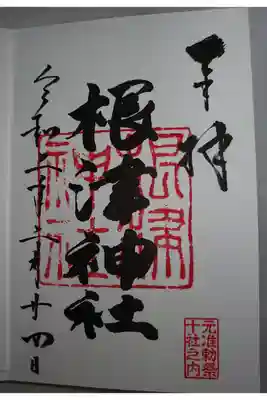 奉拝
根津神社
根津
神社
令和
月廿四日
元准勅祭
十社之内